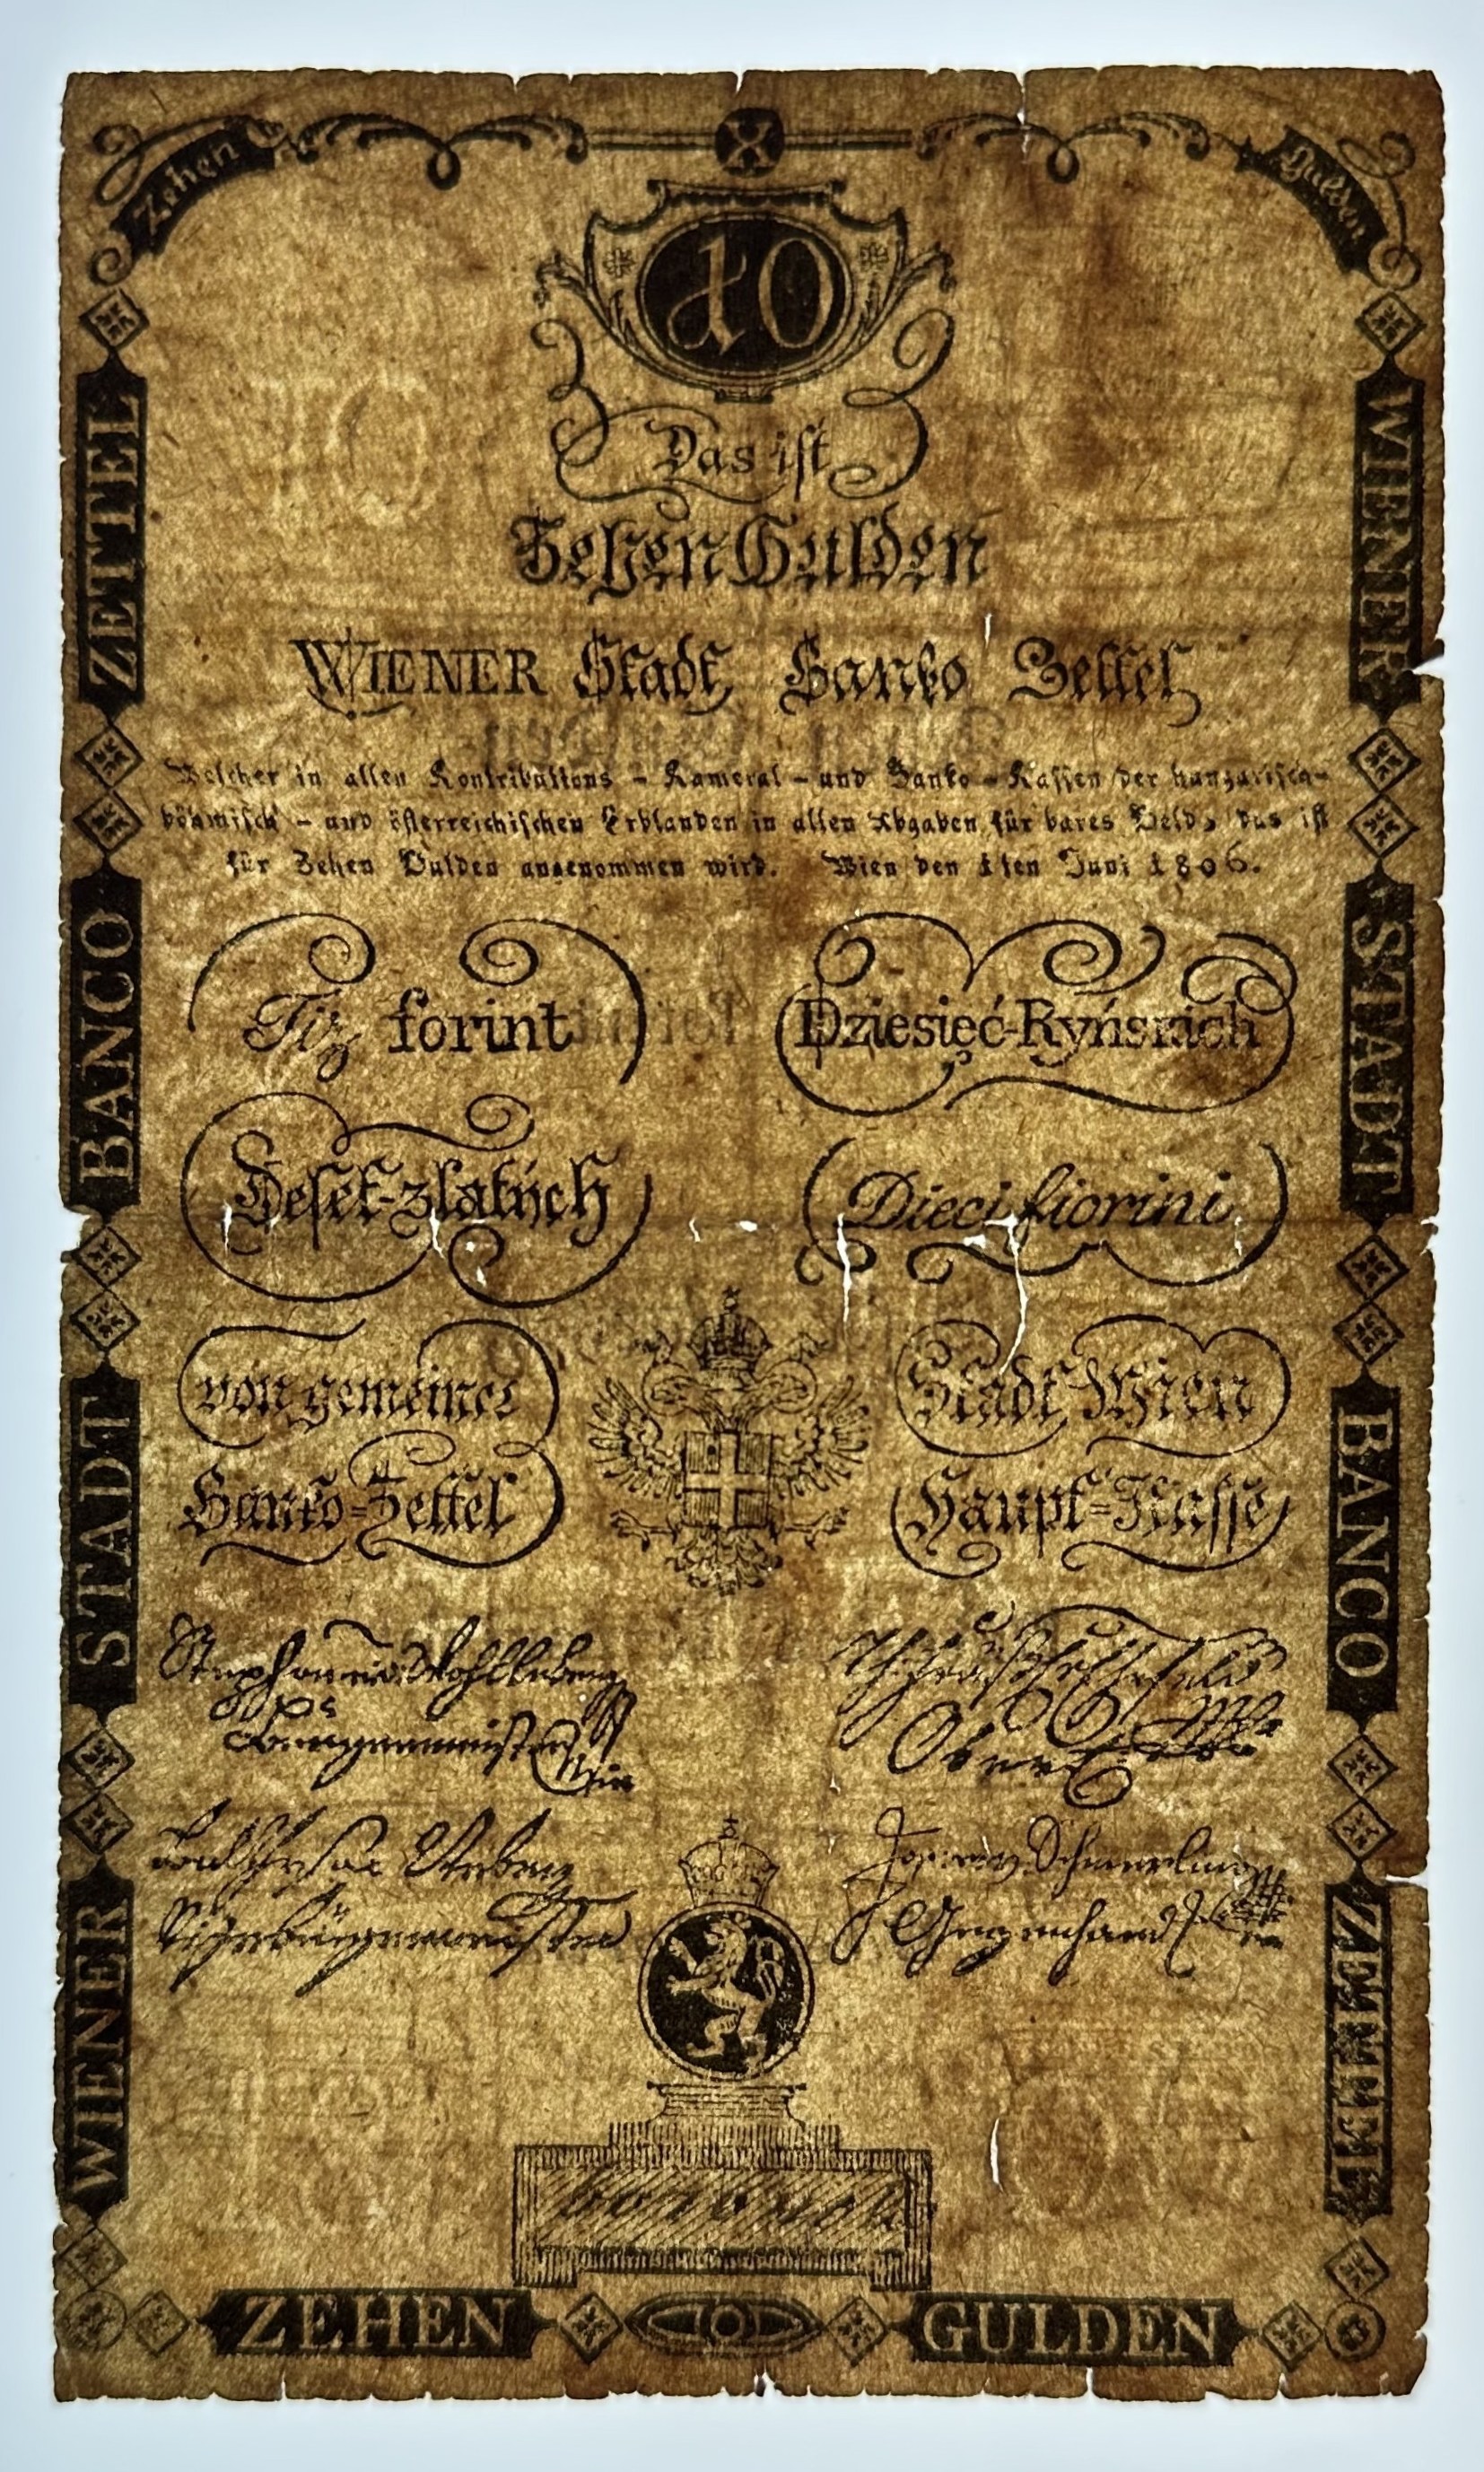 Zehen
X
Gulden
10
Das ist
Zehen Gulden
WIENER Stadt Banko Zettel
Welcher in allen Kontributions - Kameral - und Banko - Kassen der hungarisch-
böhmisch - und österreichischen Erblanden in allen Abgaben für bares Geld, das ist
für Zehen Gulden angenommen wird. Wien den 1ten Juni 1806.
Tiz forint
Dziesięć-Ryńskich
Deset-zlatych
Dieci fiorini
von gemeiner
Stadt Wien
Banko=Zettel
Haupt=Kasse
WIENER
STADT
BANCO
ZETTEL
WIENER
STADT
BANCO
ZETTEL
ZEHEN
GULDEN